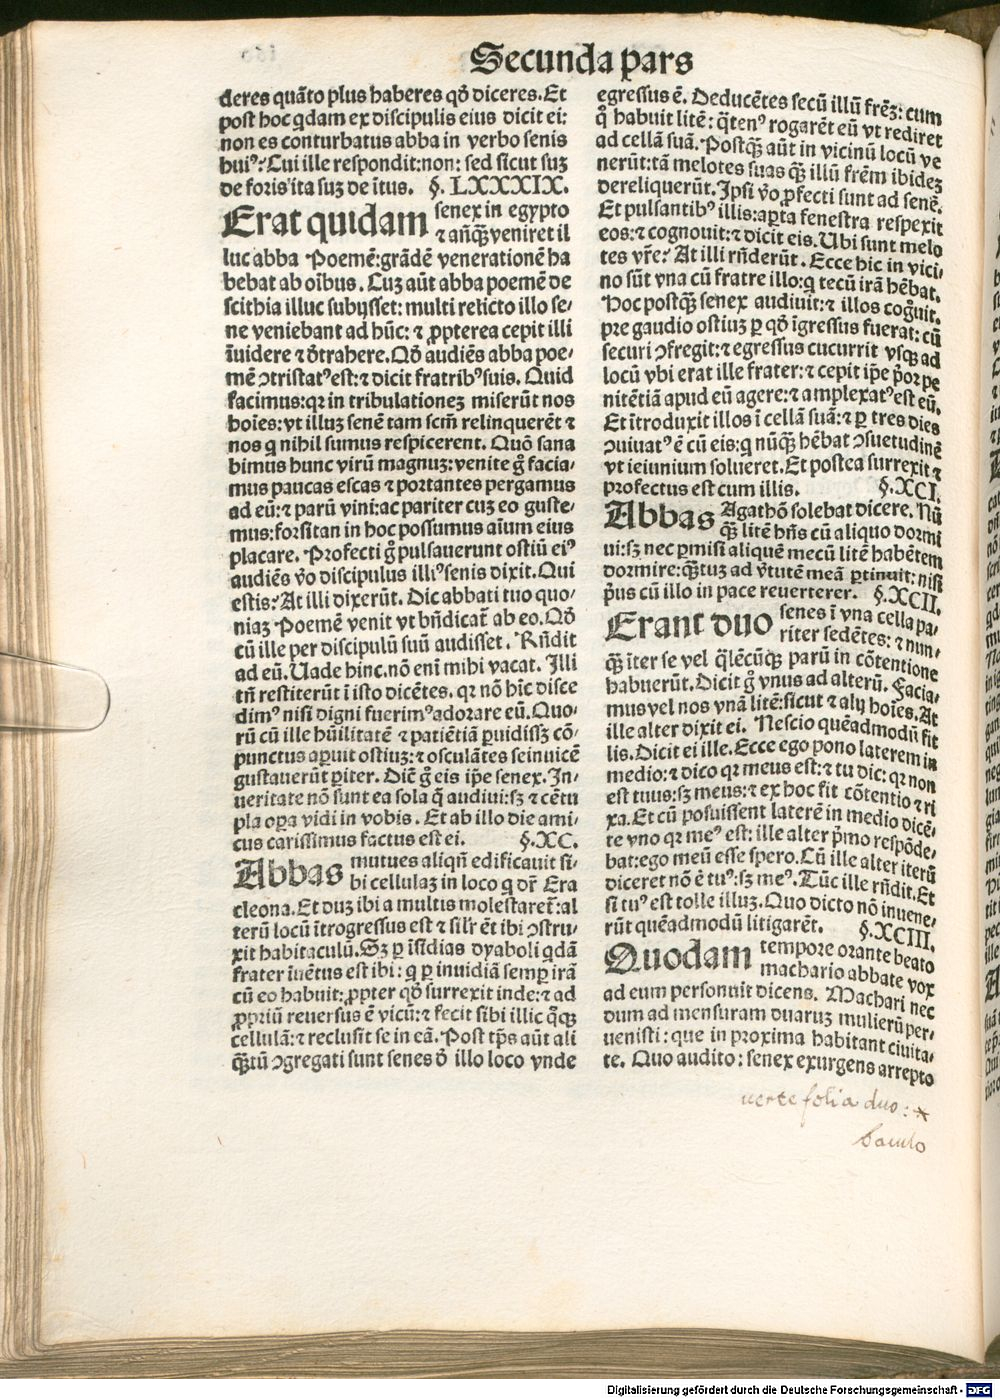 Secunda pars
deres quãto plus haberes qđ diceres. Et
post hoc qdam ex discipulis eius dicit ei:
non es conturbatus abba in verbo senis
huiꝰ? Cui ille respondit: non: sed sicut suꝫ
de foris ita suꝫ de ĩtus. §. LXXXIX.
Erat quidam senex in egypto
⁊ añq̃ veniret il
luc abba Poemẽ: grãdẽ venerationẽ ha
bebat ab oĩbus. Cuꝫ aũt abba poemẽ de
scithia illuc subijsset: multi relicto illo se-
ne veniebant ad hũc: ⁊ ꝓpterea cepit illi
ĩuidere ⁊ đtrahere. Qđ audiẽs abba poe-
mẽ ↄtristatꝰ est: ⁊ dicit fratribꝰ suis. Quid
facimus: qꝛ in tribulationeꝫ miserũt nos
hoĩes: vt illuꝫ senẽ tam scm̃ relinquerẽt ⁊
nos q nihil sumus respicerent. Quõ sana
bimus hunc virũ magnuꝫ: venite g̃ facia-
mus paucas escas ⁊ portantes pergamus
ad eũ: ⁊ parũ vini: ac pariter cuꝫ eo guste-
mus: forsitan in hoc possumus aĩum eius
placare. Profecti g̃ pulsauerunt ostiũ eiꝰ
audiẽs v̊o discipulus illiꝰ senis dixit. Qui
estis? At illi dixerũt. Dic abbati tuo quo-
niaꝫ Poemẽ venit vt bñdicat᷑ ab eo. Qđ
cũ ille per discipulũ suũ audisset. Rñdit
ad eũ. Uade hinc. nõ enĩ mihi vacat. Illi
tñ restiterũt ĩ isto dicẽtes. qꝛ nõ hĩc disce
dimꝰ nisi digni fuerimꝰ adorare eũ. Quo-
rũ cũ ille hũilitatẽ ⁊ patiẽtiã ꝑuidissꝫ cõ-
punctus aꝑuit ostiuꝫ: ⁊ osculãtes se inuicẽ
gustauerũt ꝑiter. Dic̃ g̃ eis ip̃e senex. In-
ueritate nõ sunt ea sola q̃ audiui: sꝫ ⁊ cẽtu
pla oꝑa vidi in vobis. Et ab illo die ami-
cus carissimus factus est ei. §. XC.
Abbas mutues aliqñ edificauit si-
bi cellulaꝫ in loco q dr̃ Era
cleona. Et duꝫ ibi a multis molestaret᷑: al
terũ locũ ĩtrogressus est ⁊ silr̃ ẽt ibi ↄstru-
xit habitaculũ. Sꝫ ꝑ ĩsidias dyaboli qdã
frater ĩuẽtus est ibi: q ꝑ inuidiã semꝑ irã
cũ eo habuit: ꝓpter qđ surrexit inde: ⁊ ad
ꝓpriũ reuersus ẽ vicũ: ⁊ fecit sibi illic qq̃
cellulã: ⁊ reclusit se in eã. Post tp̃s aũt ali
q̃tũ ↄgregati sunt senes đ illo loco vnde
egressus ẽ. Deducẽtes secũ illũ frẽꝫ: cum
q̊ habuit litẽ: q̃tenꝰ rogarẽt eũ vt rediret
ad cellã suã. Postq̃ aũt in vicinũ locũ ve
nerũt: tã melotes suas q̃ illũ frẽm ibideꝫ
dereliquerũt. Ipsi v̊o ꝓfecti sunt ad senẽ.
Et pulsantibꝰ illis: aꝑta fenestra respexit
eos: ⁊ cognouit: ⁊ dicit eis. Ubi sunt melo
tes vr̃e? At illi rñderũt. Ecce hic in vici-
no sũt vna cũ fratre illo: q tecũ irã hẽbat.
Hoc postq̃ senex audiuit: ⁊ illos cog̃uit.
pre gaudio ostiuꝫ ꝑ qđ ĩgressus fuerat: cũ
securi ↄfregit: ⁊ egressus cucurrit vsqꝫ ad
locũ vbi erat ille frater: ⁊ cepit ip̃e p̊or pe
nitẽtiã apud eũ agere: ⁊ amplexatꝰ est eũ.
Et ĩtroduxit illos ĩ cellã suã: ⁊ ꝑ tres dies
ↄuiuatꝰ ẽ cũ eis: q nũq̃ hẽbat ↄsuetudinẽ
vt ieiunium solueret. Et postea surrexit ⁊
profectus est cum illis. §. XCI.
Abbas Agathõ solebat dicere. Nũ
q̃ litẽ hñs cũ aliquo dormi
ui: sꝫ nec ꝑmisi aliquẽ mecũ litẽ habẽtem
dormire: q̃tuꝫ ad v̊tutẽ meã ꝑtinuit: nisi
p̊us cũ illo in pace reuerterer. §. XCII.
Erant duo senes ĩ vna cella pa-
riter sedẽtes: ⁊ nun-
q̃ ĩter se vel q̃lẽcũqꝫ parũ in cõtentione
habuerũt. Dicit g̃ vnus ad alterũ. Facia-
mus vel nos vnã litẽ: sicut ⁊ alij hoĩes. At
ille alter dixit ei. Nescio quẽadmodũ fit
lis. Dicit ei ille. Ecce ego pono laterem in
medio: ⁊ dico qꝛ meus est: ⁊ tu dic: qꝛ non
est tuus: sꝫ meus: ⁊ ex hoc fit cõtentio ⁊ ri
xa. Et cũ posuissent laterẽ in medio dicẽ-
te vno qꝛ meꝰ est: ille alter p̊mo respõde-
bat: ego meũ esse spero. Cũ ille alter iterũ
diceret nõ ẽ tuꝰ: sꝫ meꝰ. Tũc ille rñdit. Et
si tuꝰ est tolle illuꝫ. Quo dicto nõ inuene-
rũt quẽadmodũ litigarẽt. §. XCIII.
Quodam tempore orante beato
machario abbate vox
ad eum personuit dicens. Machari nec
dum ad mensuram duaruꝫ mulierũ per-
uenisti: que in proxima habitant ciuita-
te. Quo audito: senex exurgens arrepto
uerte folia duo: *
baculo
Digitalisierung gefördert durch die Deutsche Forschungsgemeinschaft - DFG